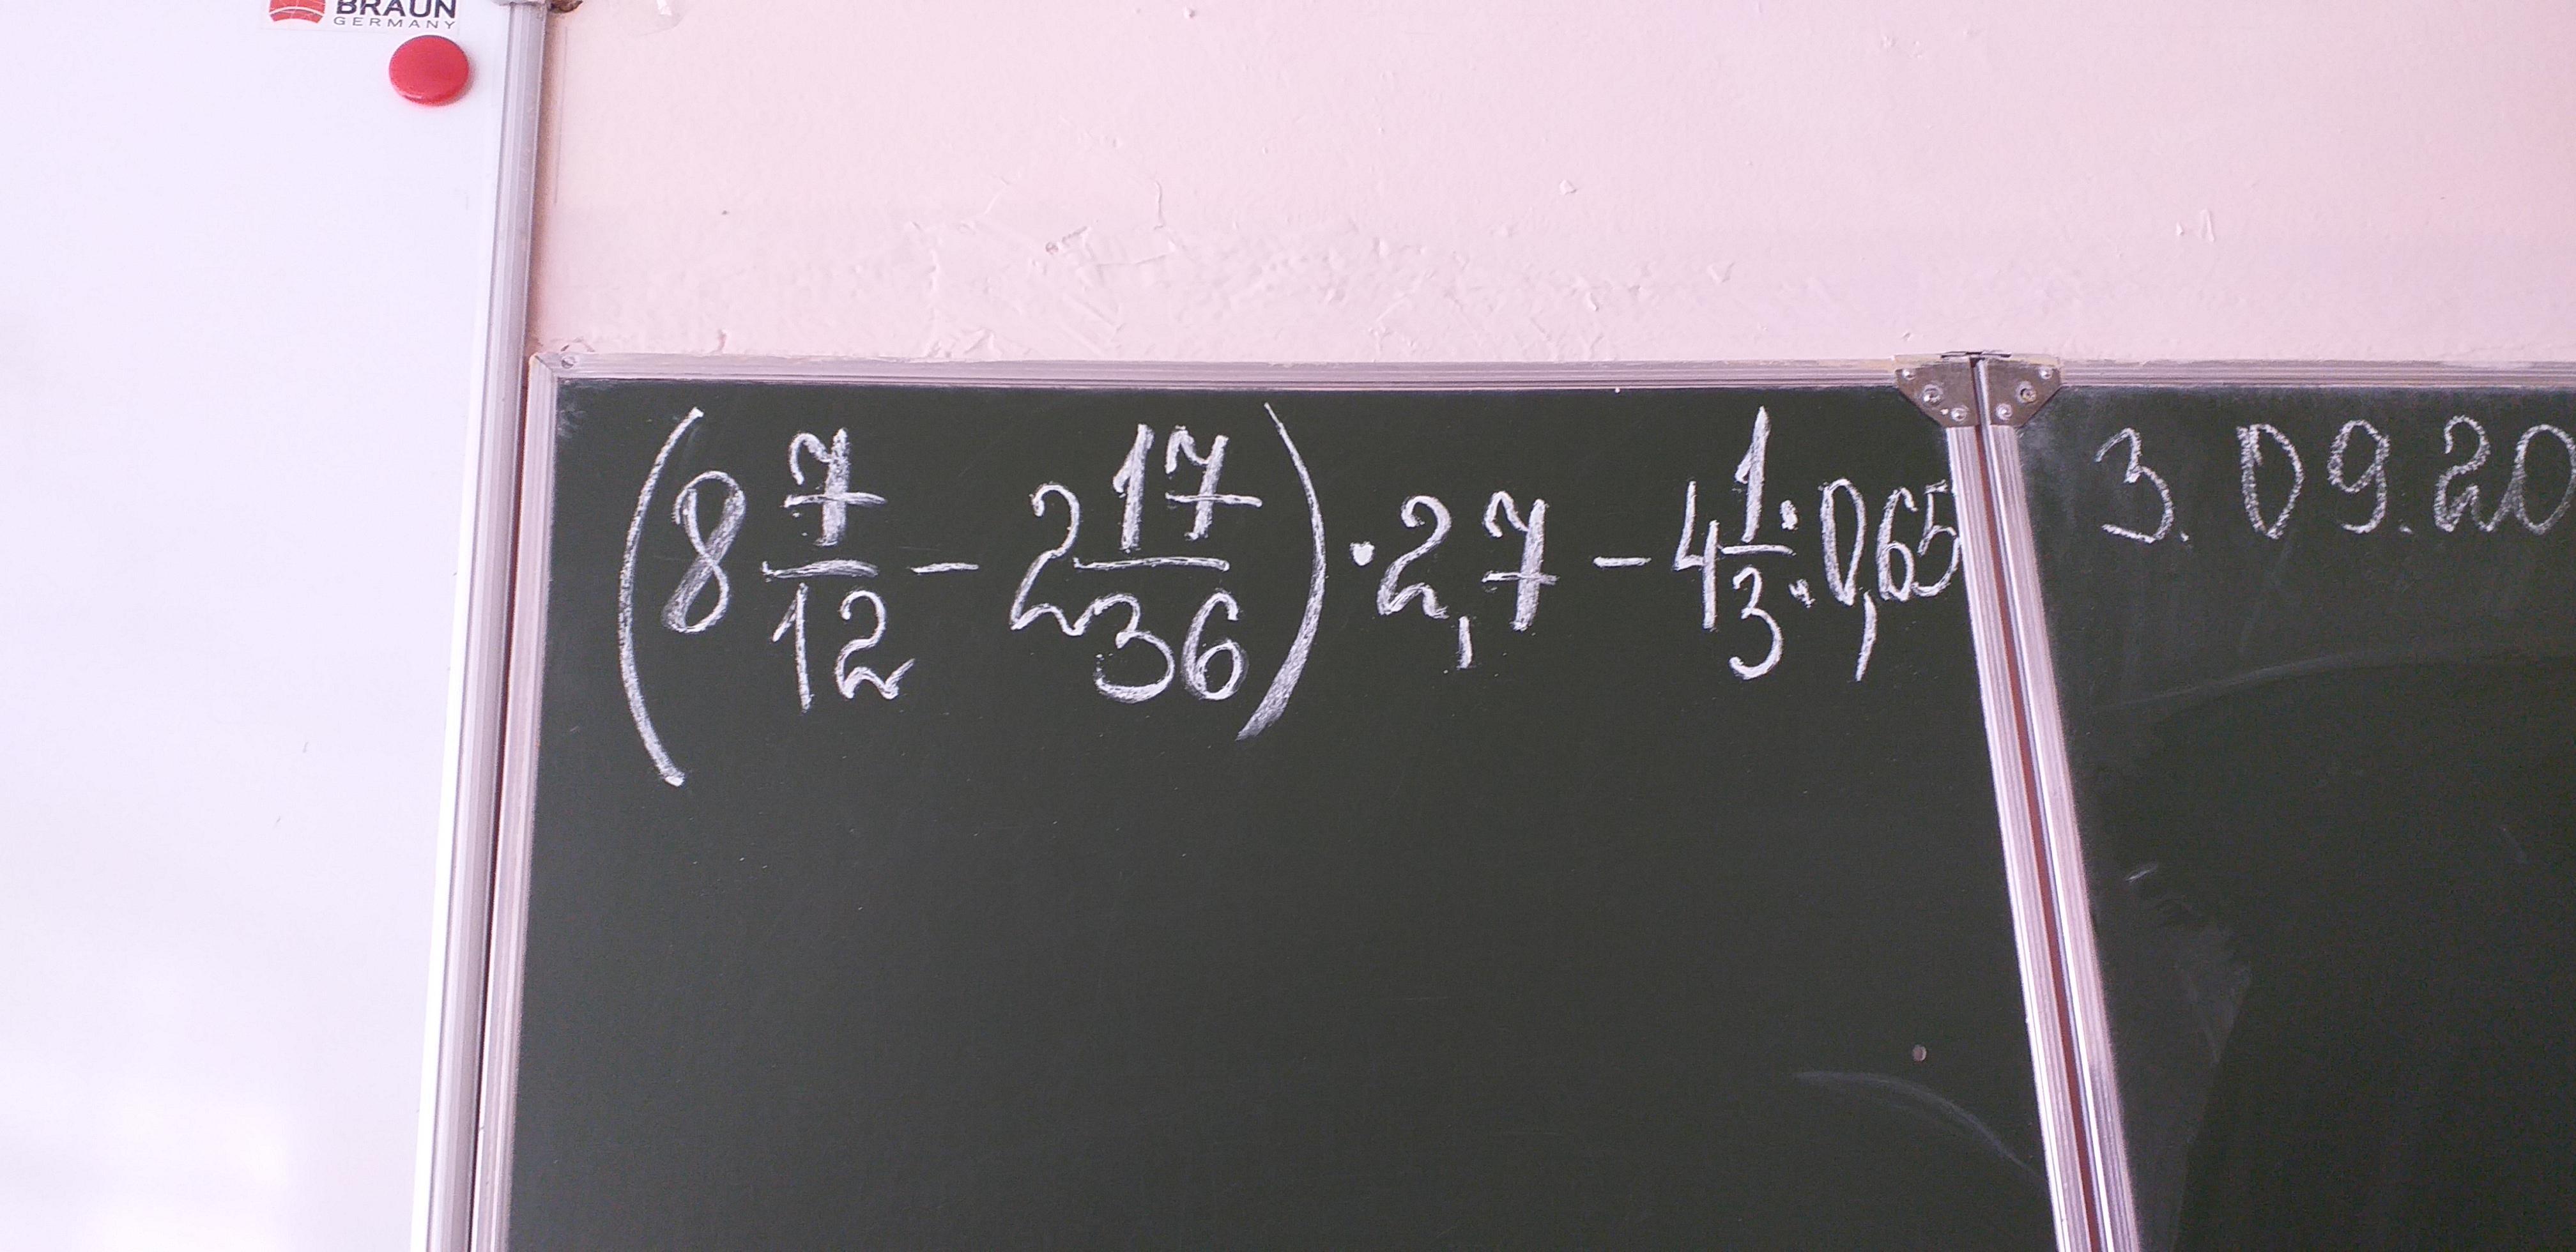 BRAUN
GERMANY
(8 7/12 - 2 17/36) · 2,7 - 4 1/3 : 0,65
3.09.20